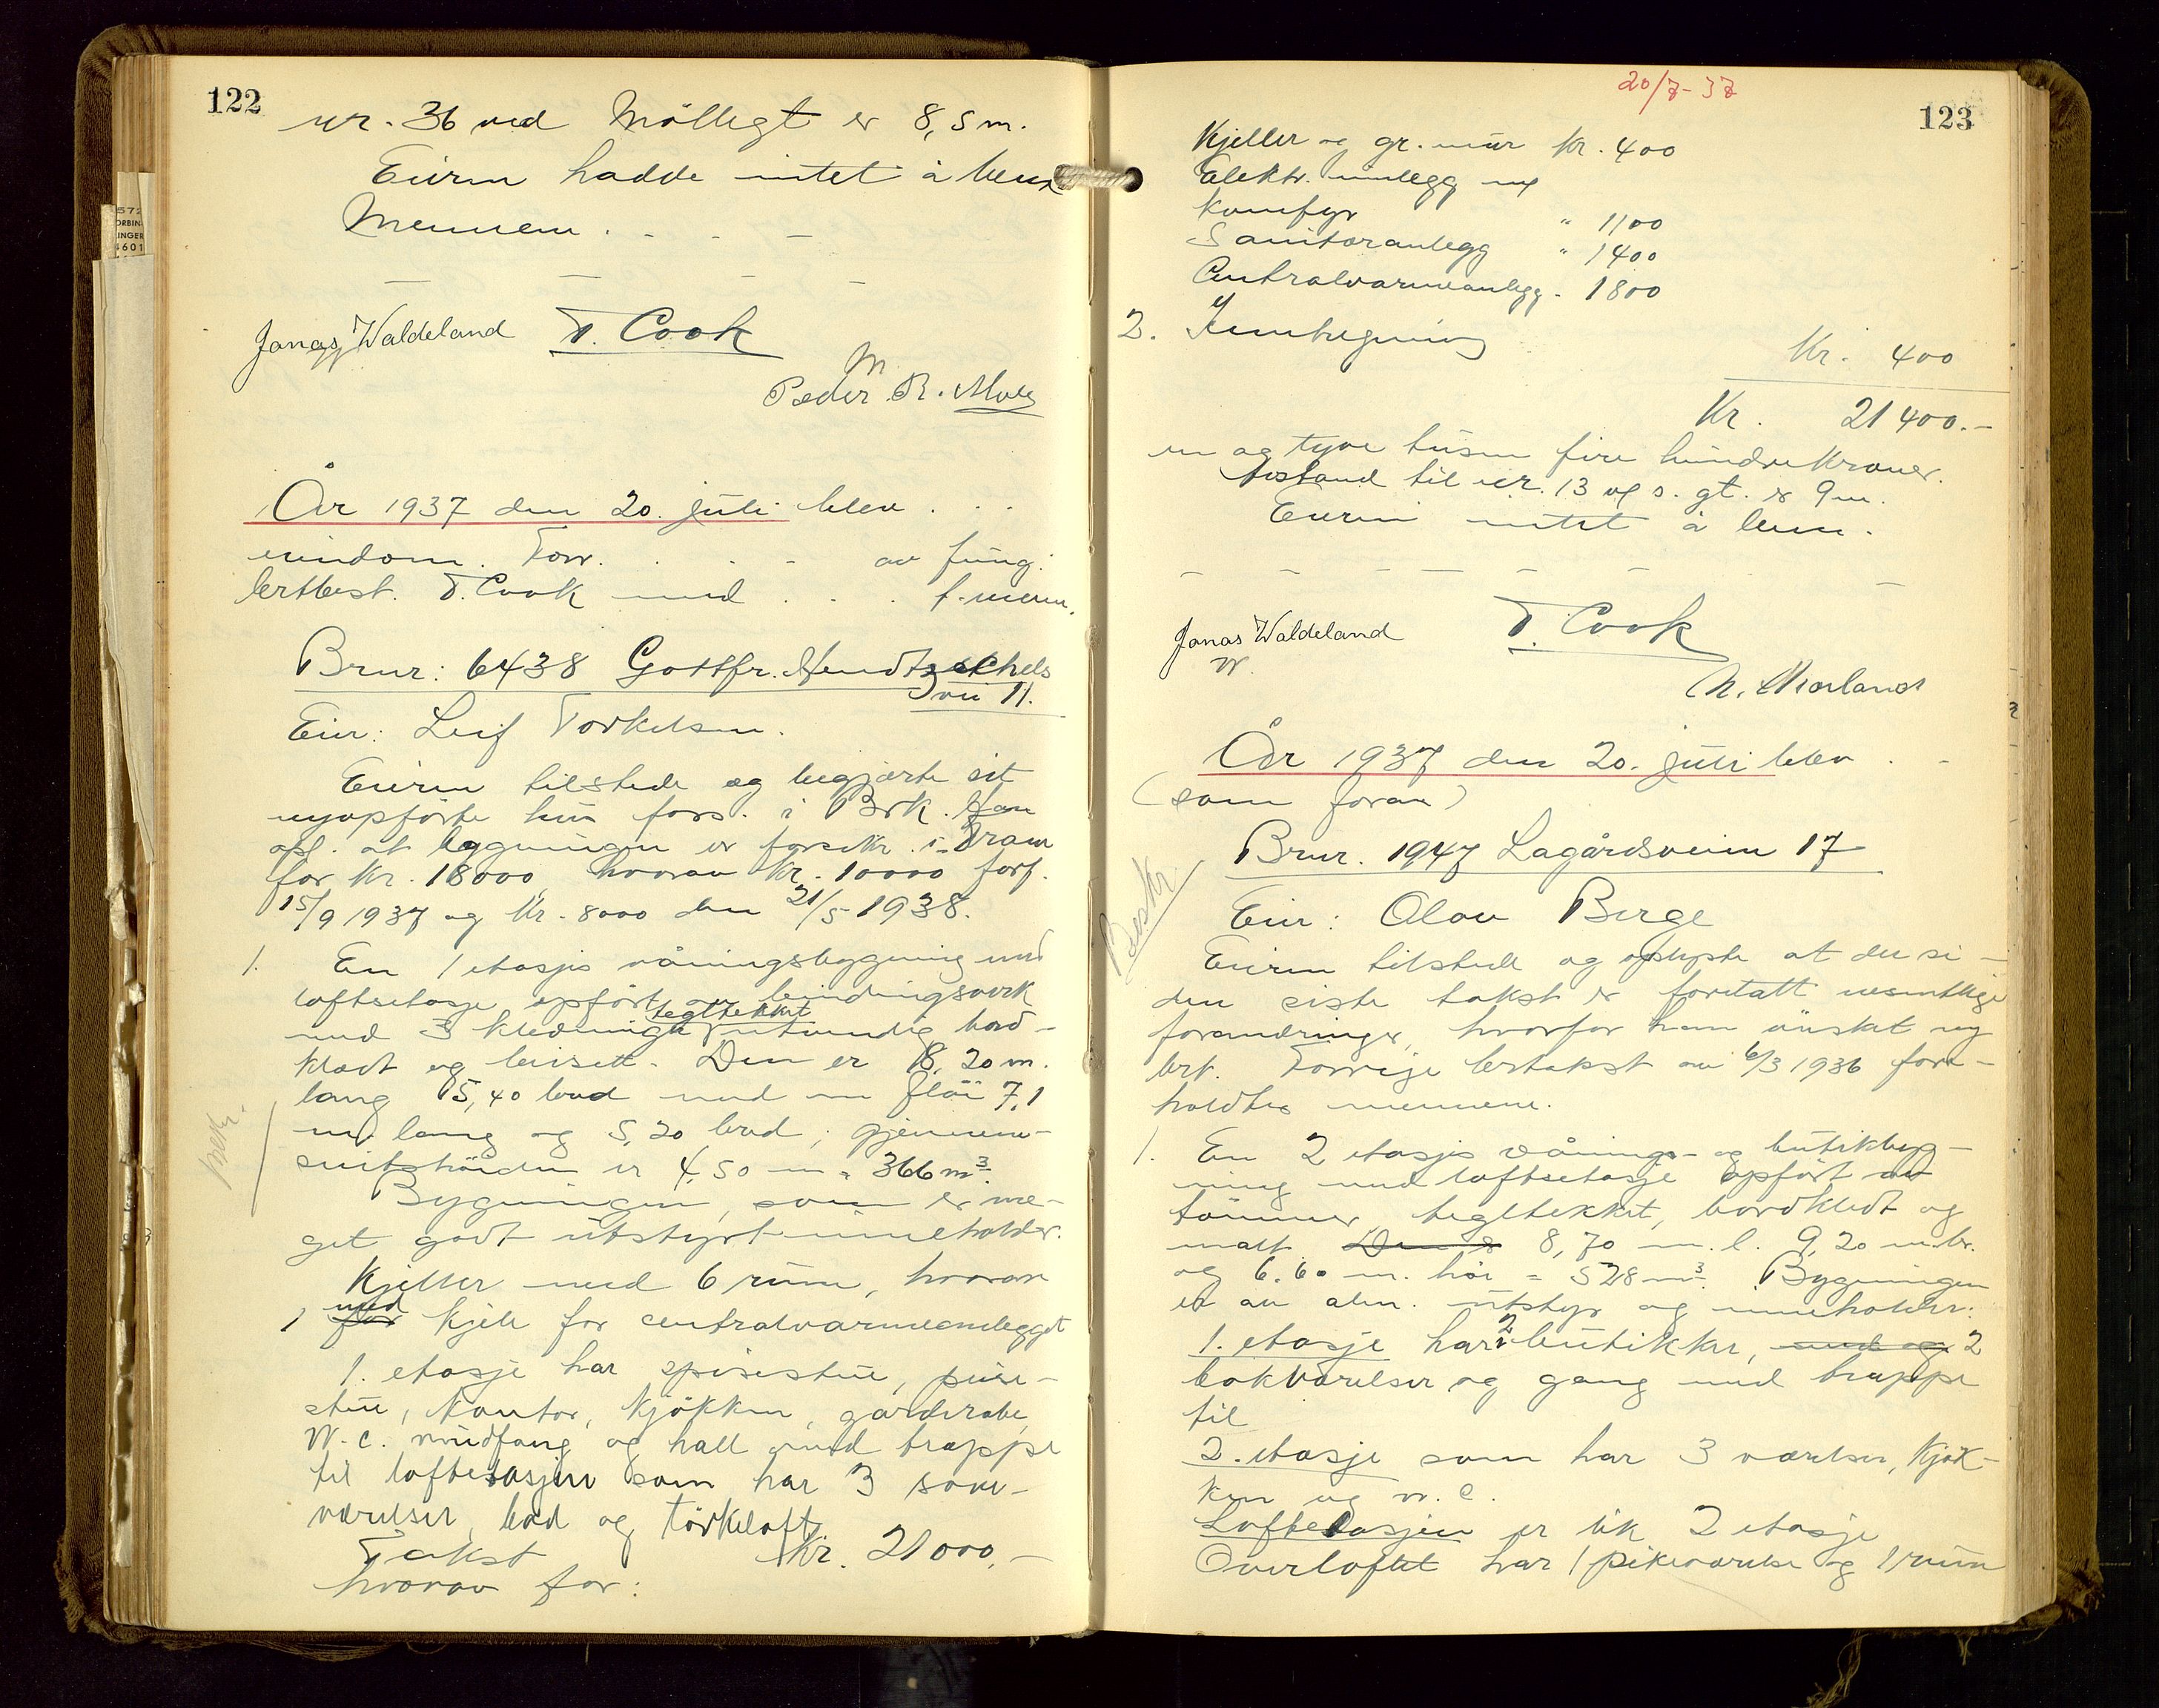 122
nr. 36 ved Möllegt er 8,5 m.
Eieren hadde intet å bem
Mennene . - - -
Jonas Waldeland T. Cook
Peder R. Moe
År 1937 den 20. juli blev . . .
eiendom. Forr. . . - av fung.
brtbest. T. Cook med . . . f. menn.
Brnr: 6438 Gottfr. Hendtzschels
vei 11.
Eier: Leif Torkelsen.
Eieren tilstede og begjærte sit
nyopförte hus fors. i Brk. Han
opl. at bygningen er forsikr. i Fram
for kr. 18000, hvorav kr. 10000 forf.
15/9 1937 og kr. 8000 den 21/5 1938.
1. En 1 etasjes våningsbygning med
loftsetasje opfört av bindingsverk
med 3 kledninger tegltekket utvendig bord-
klædt og beiset. Den er 8,20 m.
lang 5,40 bred med en flöi 7,1
m. lang og 5,20 bred, gjennem-
snitshöiden er 4,50 m = 366 m³.
Bygningen, som er me-
get godt utstyrt inneholder.
Kjeller med 6 rum, hvorav
1 for med kjele for centralvarmeanlegget
1. etasje har spisestue, peise-
stue, kontor, kjökken, garderobe,
W.C. vindfang og hall med trappe
til loftetasjen som har 3 sove-
værelser, bad og törkeloft
Takst kr. 21000.-
hvorav for:
Beskr.
20/7-37
123
Kjeller og gr. mur kr. 400
Elektr. innlegg m/
komfyr " 1100
Sanitæranlegg " 1400
Centralvarmeanlegg - 1800
2. Innhegning
kr. 400
Kr. 21400.-
en og tyve tusen fire hundre kroner.
Avstand til nr. 13 v/ s. gt. er 9 m.
Eieren intet å bem.
Jonas Waldeland T. Cook
N. Morland
År 1937 den 20. juli blev . -
(som foran)
Brnr. 1947 Lagårdsveien 17
Eier: Olav Berge
Eieren tilstede og oplyste at der si-
den siste takst er foretatt vesentlige
forandringer, hvorfor han önsket ny
brt. Forrige brtakst av 6/3 1936 fore-
holdtes mennene.
Beskr.
1. En 2 etasjes vånings- og butikbyg-
ning med loftsetasje opfört av
tömmer, tegltekket, bordkledt og
malt. Den er 8,70 m. l. 9,20 m. br.
og 6.60 m. höi = 528 m³. Bygningen
er av alm. utstyr og inneholder:
1. etasje har 2 butikker, med og 2
bakværelser og gang med trappe
til
2. etasje som har 3 værelser, kjök-
ken og w.c.
Loftetasjen er lik 2 etasje
Overloftet har 1 pikeværelse og 1 rum